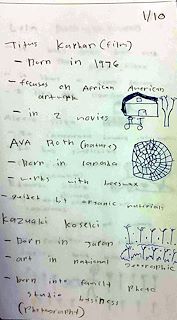 1/10
Titus Kaphar (film)
- Born in 1976
- focuses on African American
artwork
- in 2 movies
Ava Roth (nature)
- Born in Canada
- works with beeswax
- guided by organic materials
Kazuaki Koseki
- Born in Japan
- art in national geographic
- born into family photo
studio business
(photography)